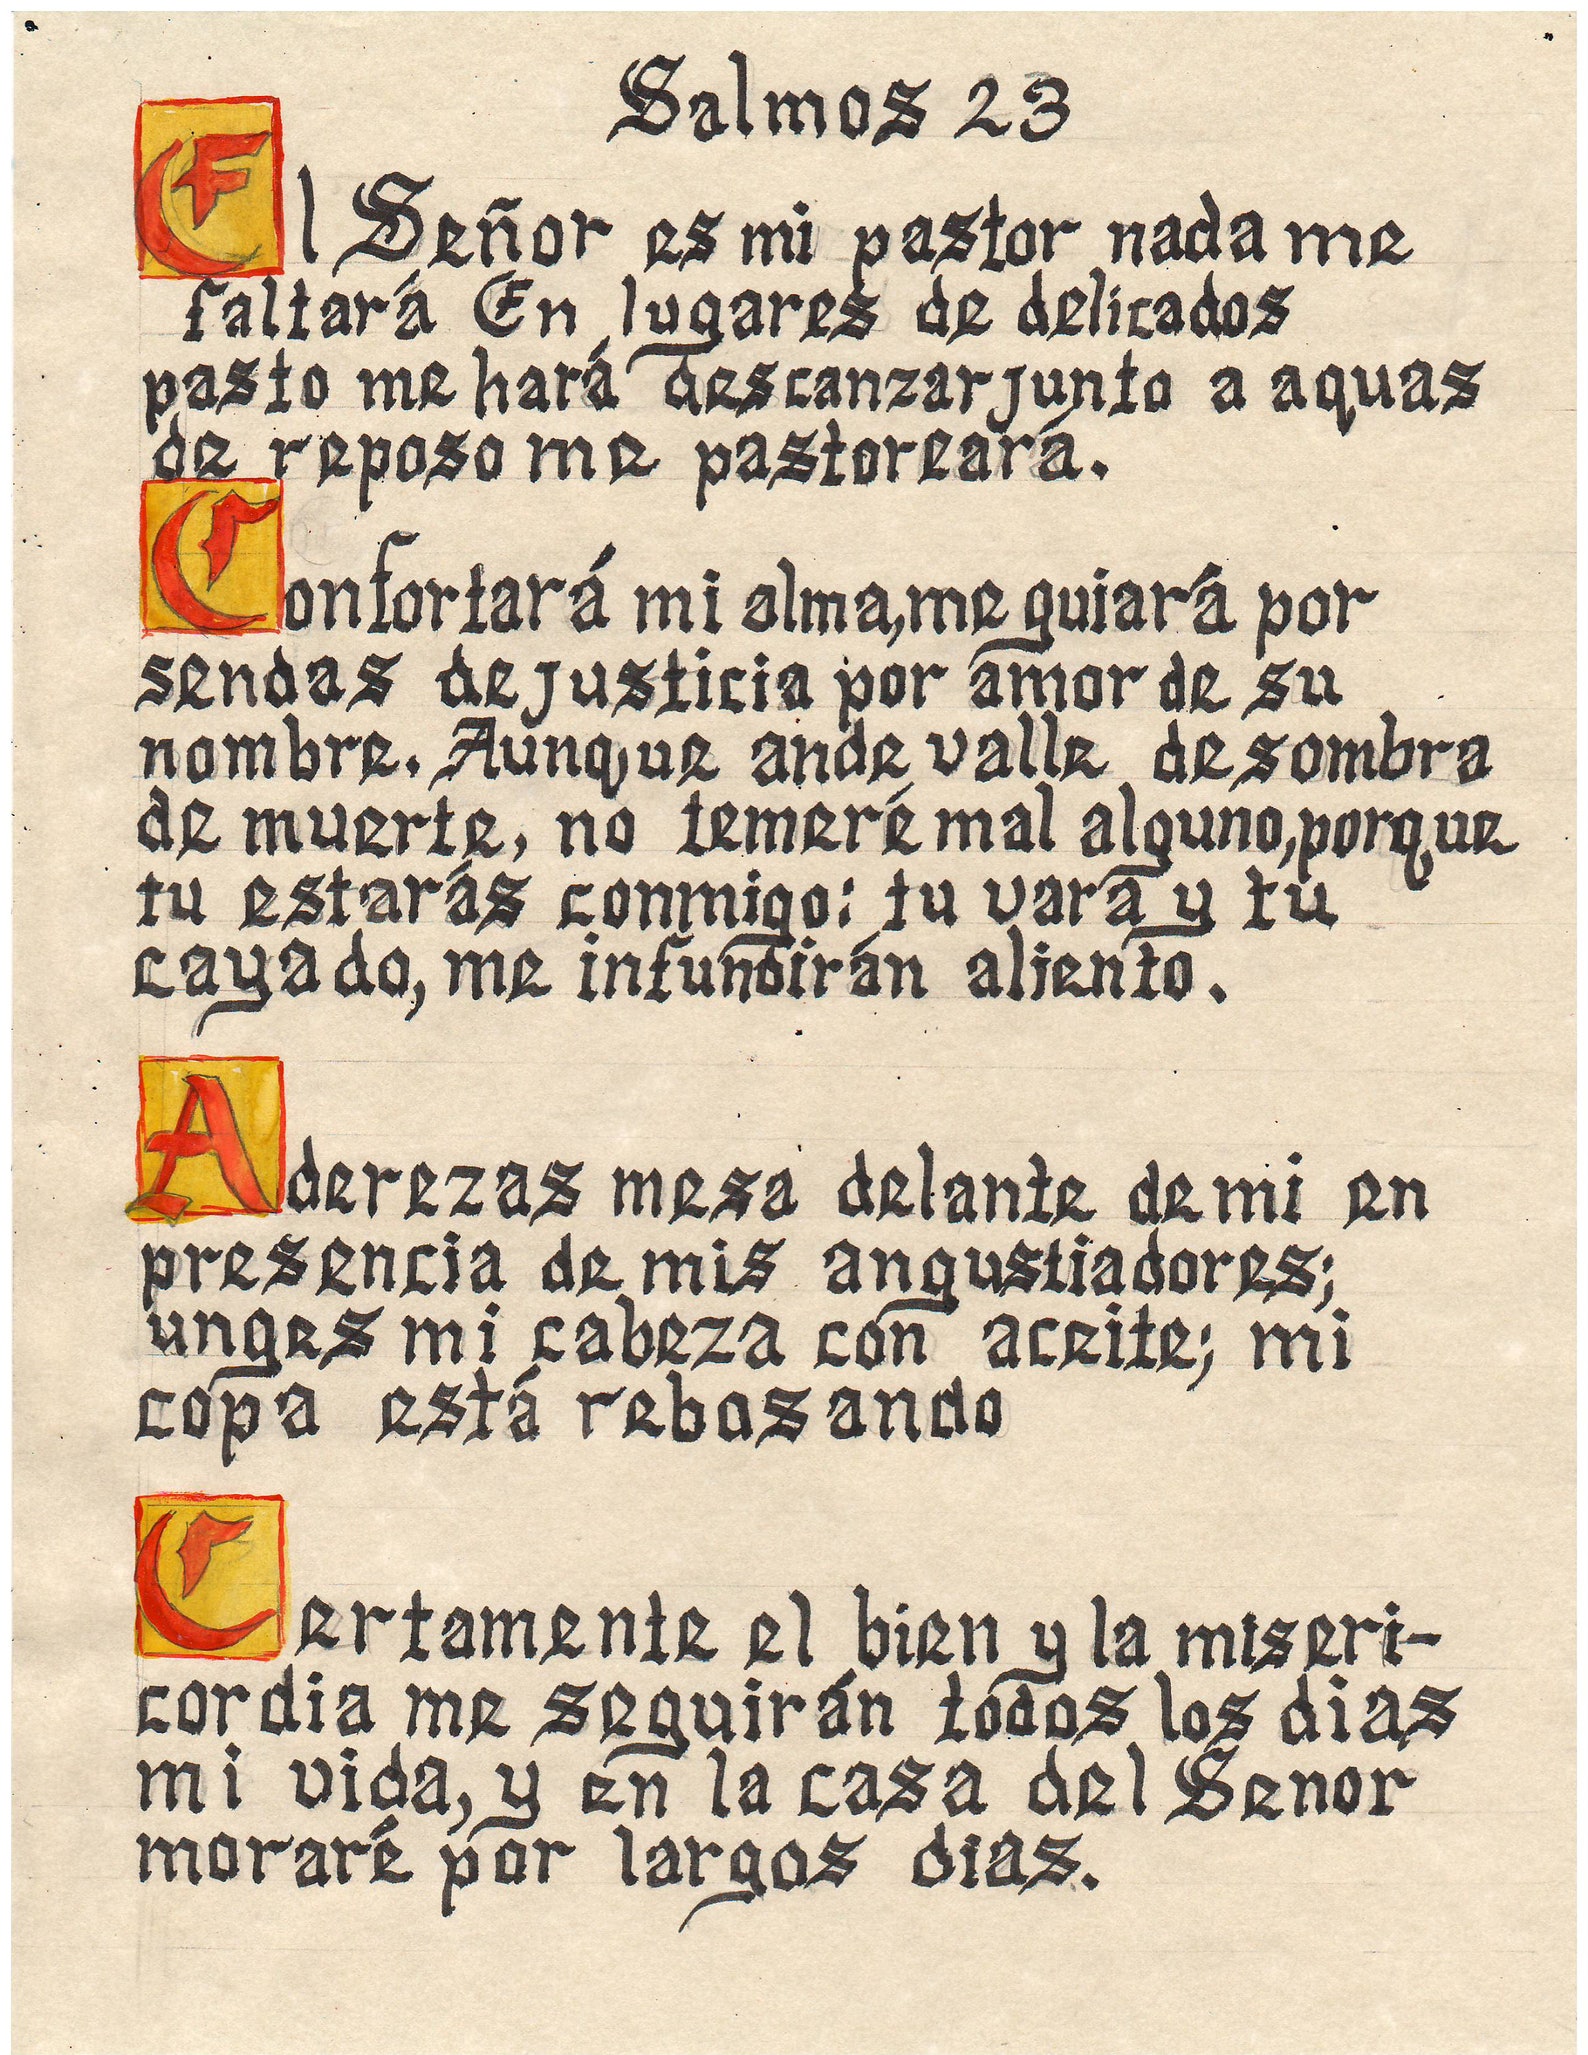 Salmos 23
El Señor es mi pastor nada me
faltará En lugares de delicados
pasto me hará descanzar junto a aguas
de reposo me pastoreará.
Confortará mi alma, me guiará por
sendas de justicia por amor de su
nombre. Aunque ande valle de sombra
de muerte, no temeré mal alguno, porque
tu estarás conmigo: tu vara y tu
cayado, me infundirán aliento.
Aderezas mesa delante de mi en
presencia de mis angustiadores;
unges mi cabeza con aceite; mi
copa está rebosando
Certamente el bien y la miseri-
cordia me seguirán todos los dias
mi vida, y en la casa del Señor
moraré por largos dias.